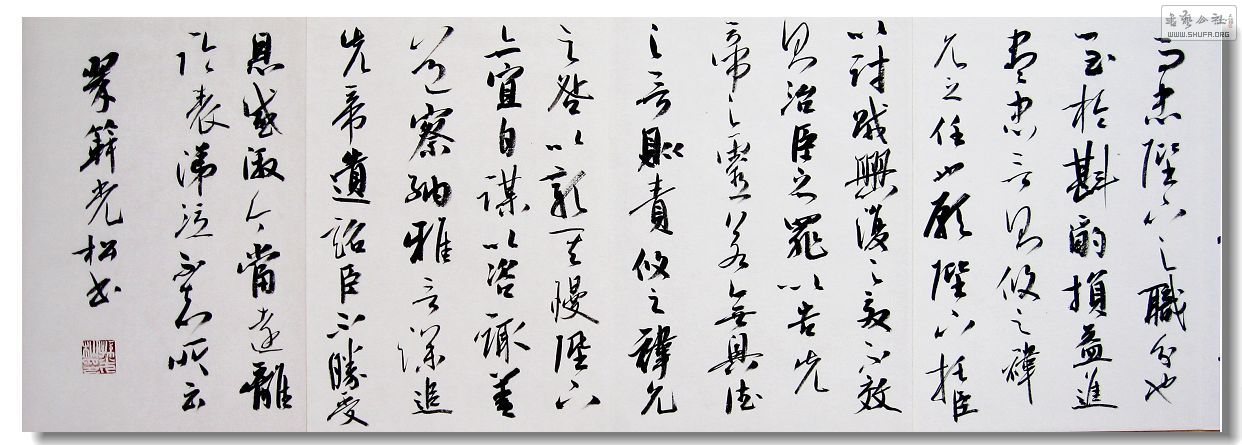 而忠陛下之職分也
至於斟酌損益進
盡忠言則攸之禕
允之任也願陛下托臣
以討賊興復之效不效
則治臣之罪以告先
帝之靈若無興德
之言則責攸之禕允
之咎以彰其慢陛下
亦宜自謀以咨諏善
道察納雅言深追
先帝遺詔臣不勝受
恩感激今當遠離
臨表涕泣不知所云
光松书
书艺公社
WWW.SHUFA.ORG